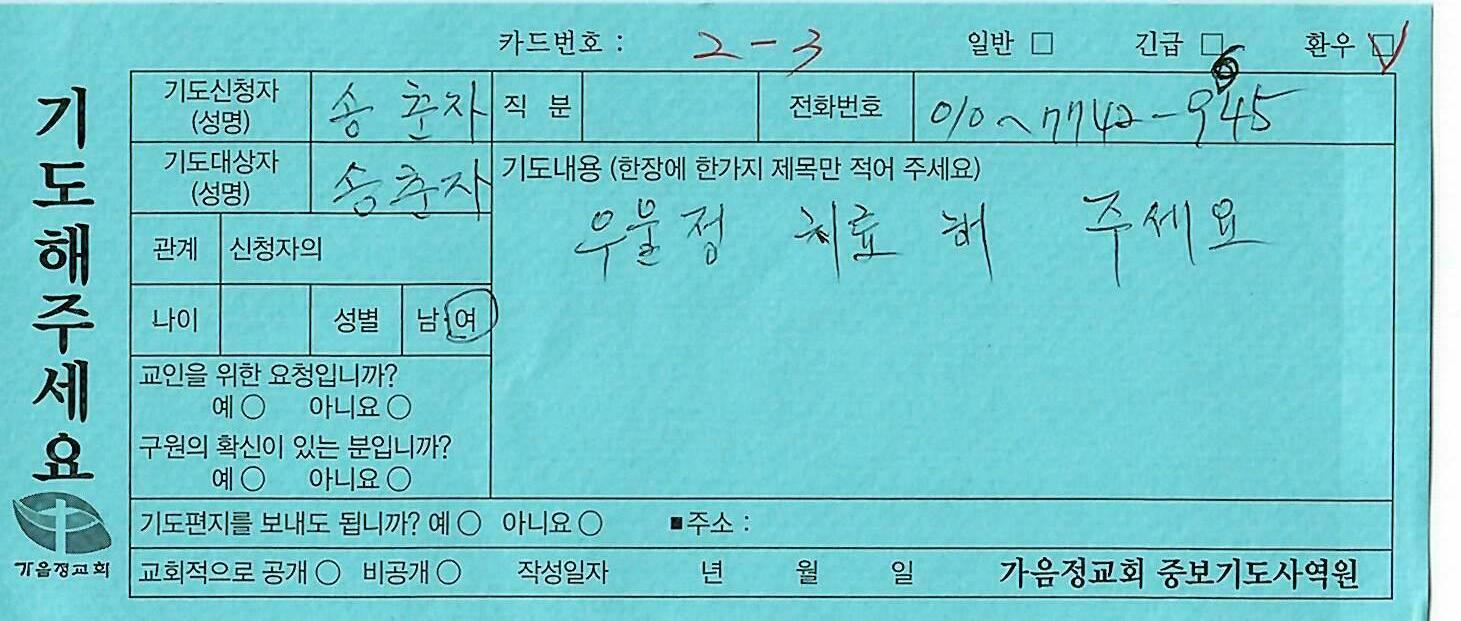 카드번호 : 2-3 일반 □ 긴급 □ 환우 ☑
기도해주세요
기도신청자 (성명) 송춘자 직 분 전화번호 010~7742-9645
기도대상자 (성명) 송춘자
기도내용 (한장에 한가지 제목만 적어 주세요)
우울정 치료 해 주세요
관계 신청자의
나이 성별 남·여
교인을 위한 요청입니까?
예 ○ 아니요 ○
구원의 확신이 있는 분입니까?
예 ○ 아니요 ○
기도편지를 보내도 됩니까? 예 ○ 아니요 ○ ■주소 :
가음정교회
교회적으로 공개 ○ 비공개 ○ 작성일자 년 월 일 가음정교회 중보기도사역원